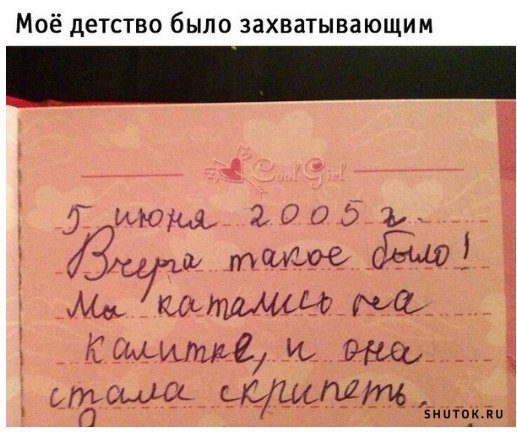 Моё детство было захватывающим
Cool Girl
5 июня 2005 г.
Вчера такое было!
Мы катались на
калитке, и она
стала скрипеть.
SHUTOK.RU